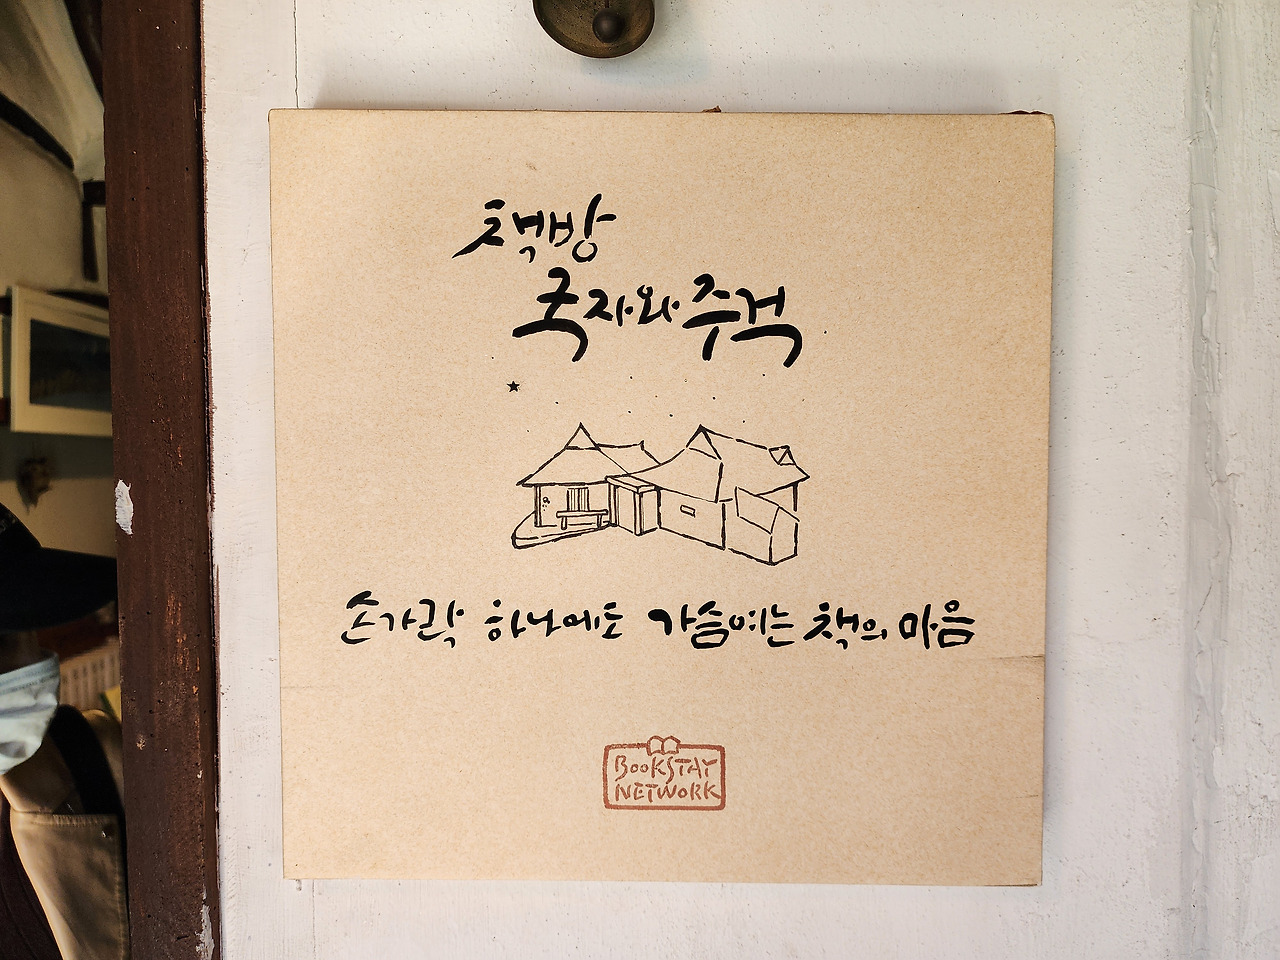 책방
국자와주걱
손가락 하나에도 가슴여는 책의 마음
BOOKSTAY
NETWORK